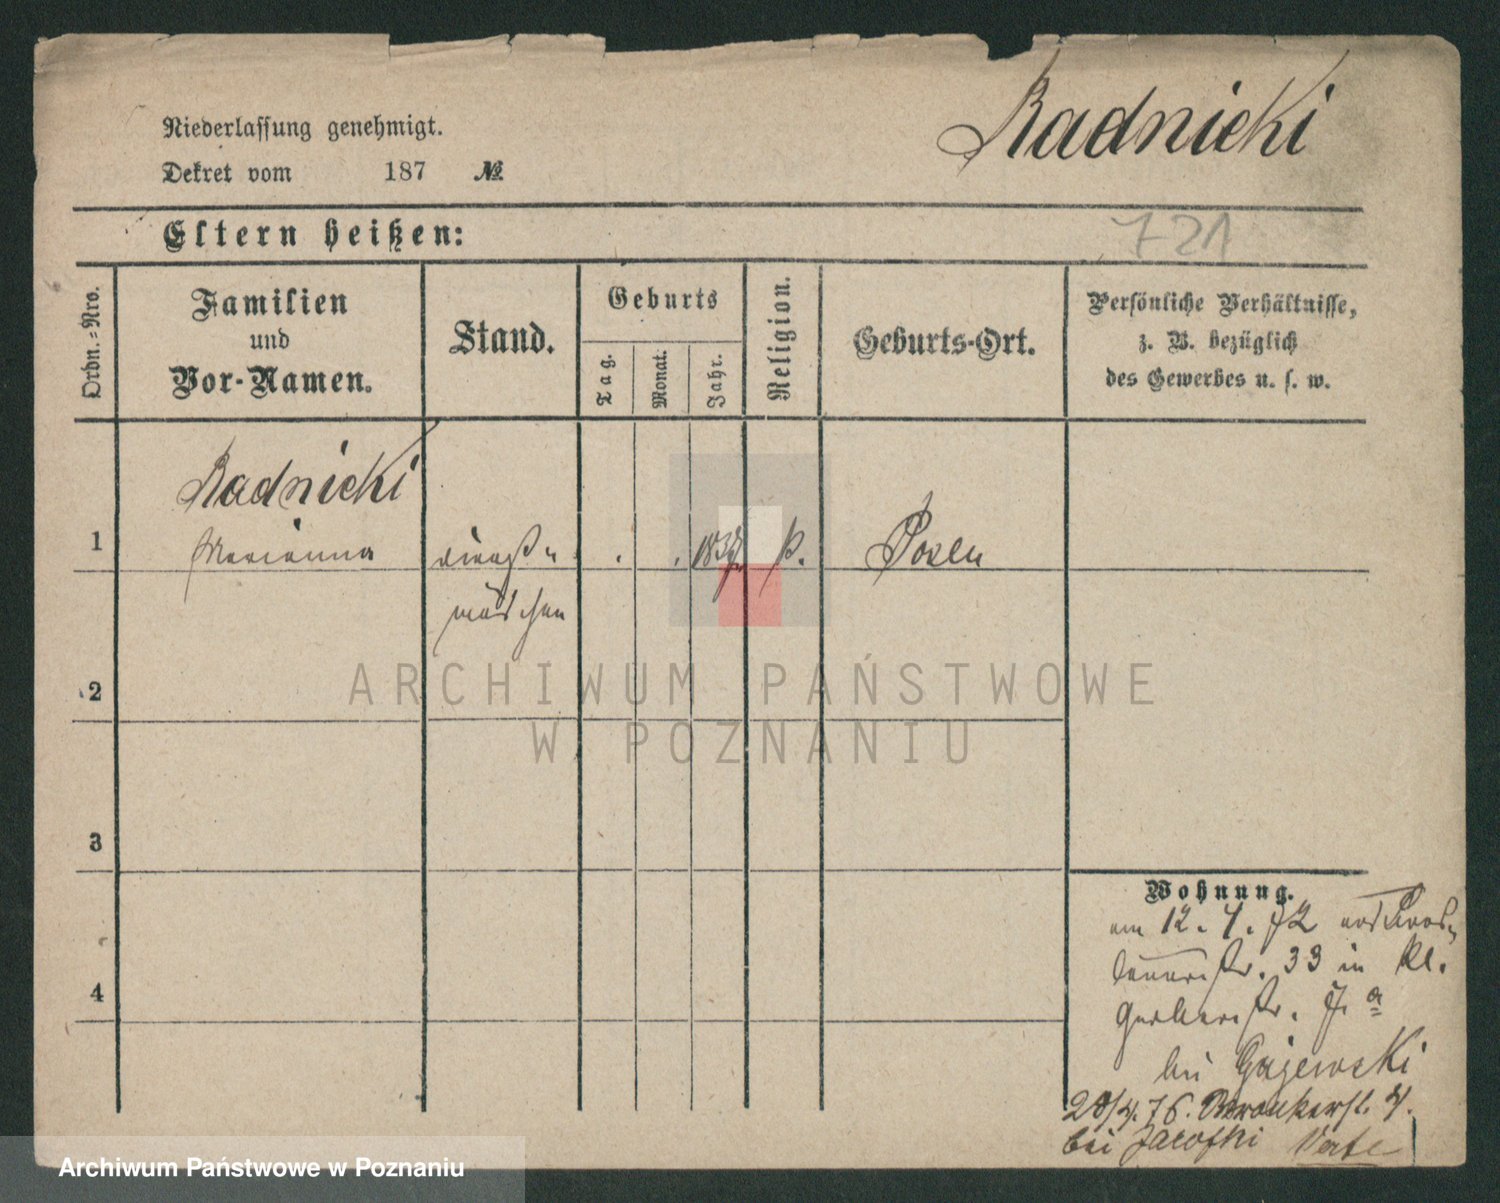 Radnicki
Niederlassung genehmigt.
Dekret vom 187 №
Eltern heißen:
721
Ordn.-Nro.
Familien
und
Vor-Namen.
Stand.
Geburts
Tag.
Monat.
Jahr.
Religion.
Geburts-Ort.
Persönliche Verhältnisse,
z. B. bezüglich
des Gewerbes u. s. w.
Radnicki
1 Marianna dienst . . k. Posen
mädchen
2
3
4
Wohnung.
am 12. 4. 72
str. 33 in kl.
Gerberstr. 7 a
bei Gajewski
76. Wronkerst. 4.
bei Verte
ARCHIWUM PAŃSTWOWE
W POZNANIU
Archiwum Państwowe w Poznaniu